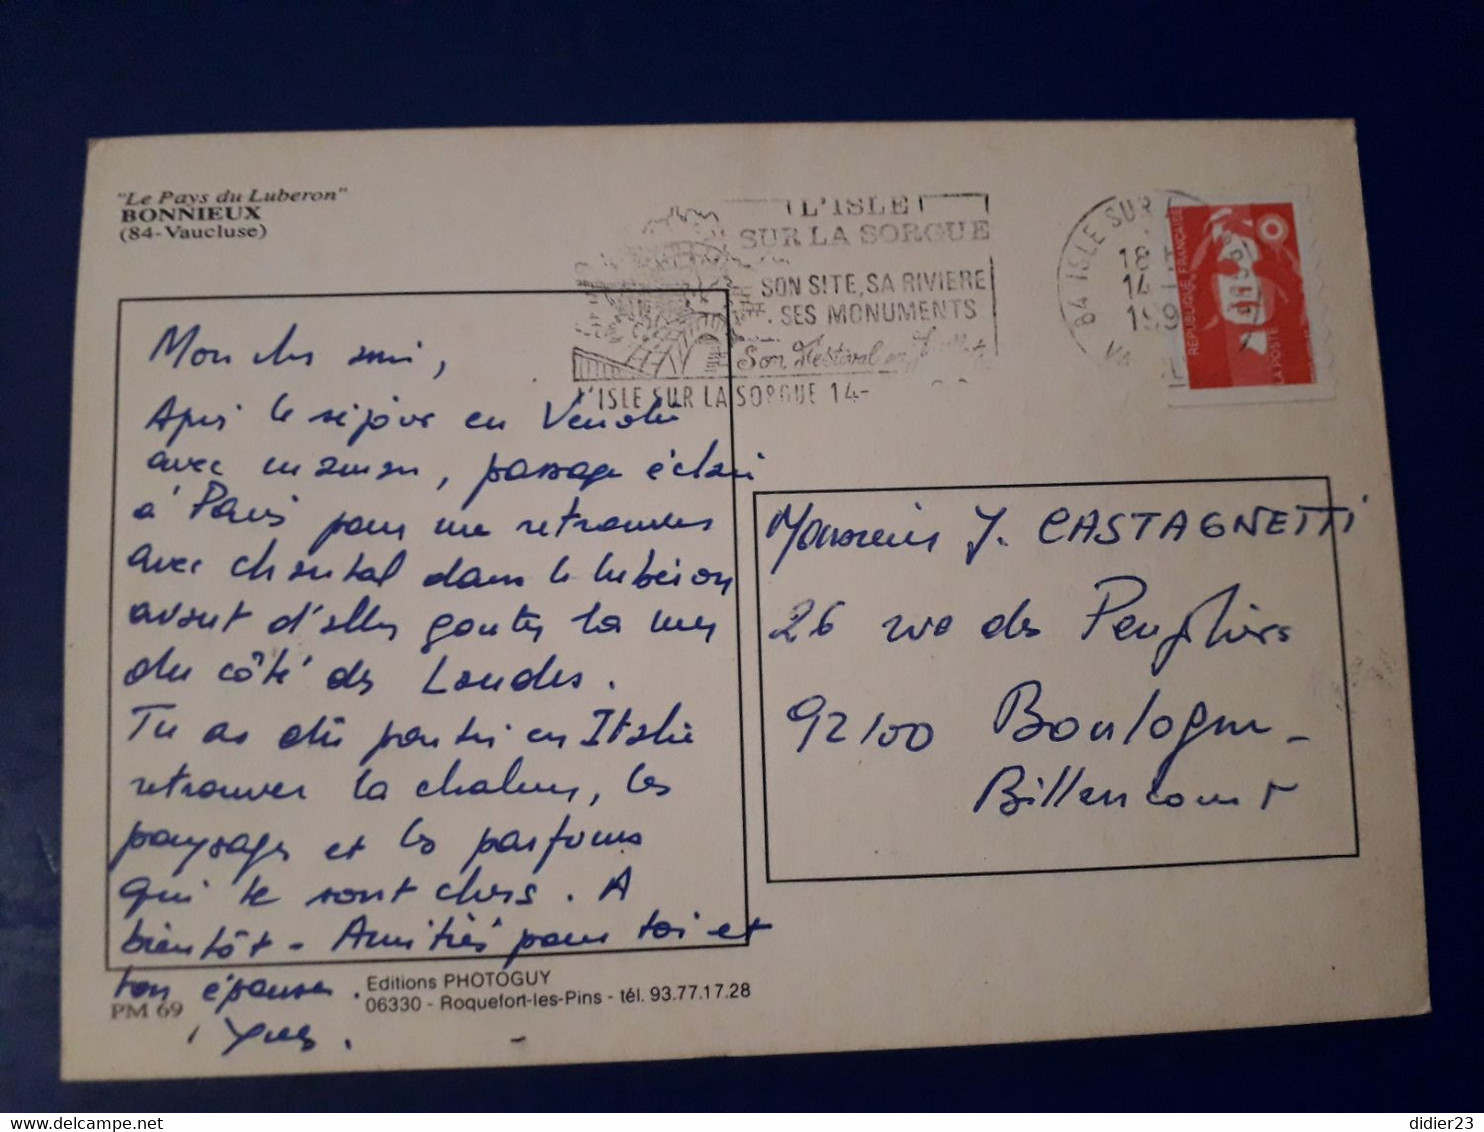 "Le Pays du Luberon"
BONNIEUX
(84-Vaucluse)
L'ISLE
SUR LA SORGUE
SON SITE, SA RIVIERE
SES MONUMENTS
Son Festival en Juillet
L'ISLE SUR LA SORGUE 14-
84 ISLE SUR
18
14
199
VA
REPUBLIQUE FRANÇAISE
LA POSTE
Mon cher ami,
Après le séjour en Vendée
avec maman, passage éclair
à Paris pour me retrouver
avec Chantal dans le Lubéron
avant d'aller goûter la mer
du côté des Landes.
Tu as dû partir en Italie
retrouver la chaleur, les
paysages et les parfums
qui te sont chers. A
bientôt - Amitiés pour toi et
ton épouse.
Yves.
Monsieur J. CASTAGNETTI
26 rue des Peupliers
92100 Boulogne -
Billancourt
Editions PHOTOGUY
06330 - Roquefort-les-Pins - tél. 93.77.17.28
PM 69
didier23